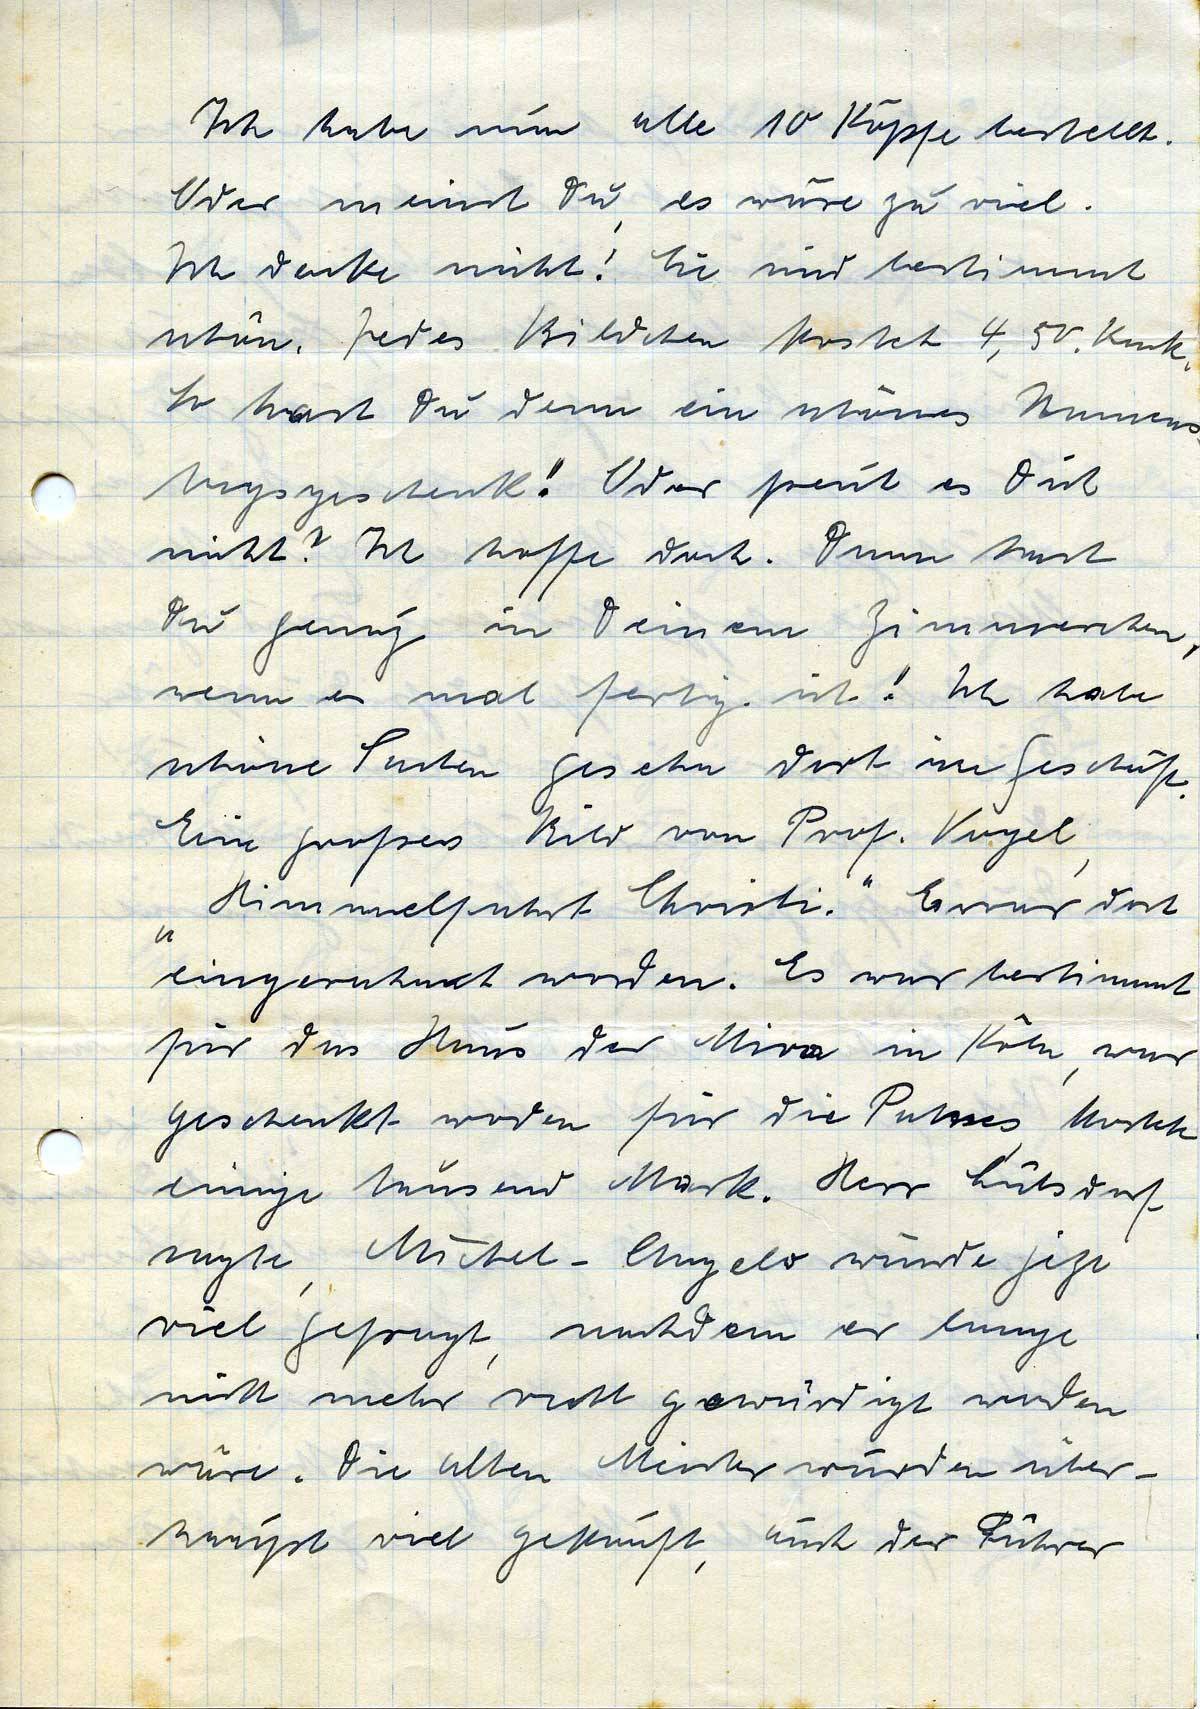 Ich habe nun alle 10 Köpfe bestellt.
Oder meinst Du, es wäre zu viel.
Ich denke nicht! Sie sind bestimmt
schön. Jedes Bildchen kostet 4,50.
So hast Du denn ein schönes Namens-
tagsgeschenk! Oder freut es Dich
nicht? Ich hoffe doch. Dann hast
Du genug in Deinem Zimmerchen,
wenn es mal fertig ist! Ich habe
schöne Sachen gesehn dort im Geschäft.
Ein grosses Bild von Prof. Vogel,
„Himmelfahrt Christi." Es war dort
eingerahmt worden. Es war bestimmt
für das Haus der in Köln, war
geschenkt worden für die Patres, kostete
einige tausend Mark. Herr
sagte, Michel-Angelo würde jetzt
viel gefragt, nachdem er lange
nicht mehr recht gewürdigt worden
wäre. Die alten Meister würden über-
haupt viel gekauft, auch der Führer